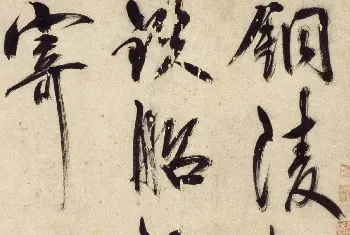 銅陵
鐵船
寄